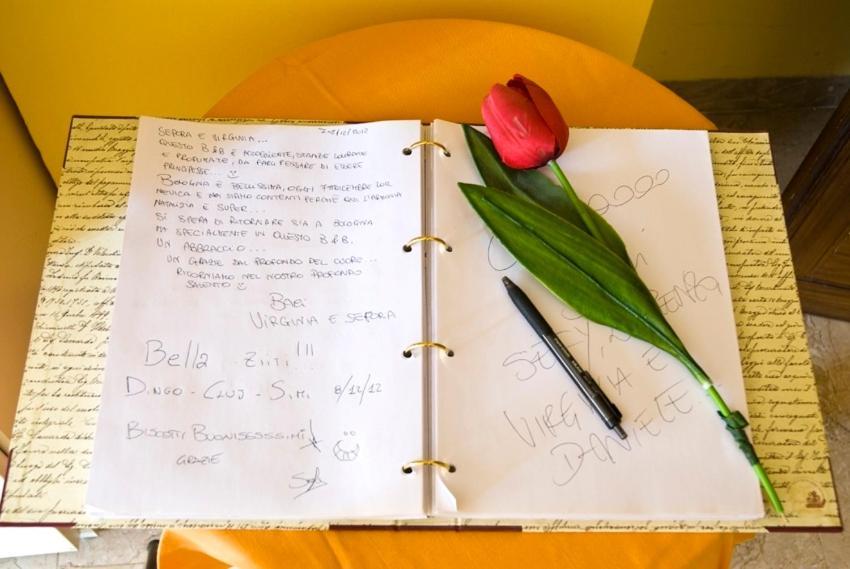 7-8/12/2012
SEFORA E VIRGINIA...
QUESTO B&B E ACCOGLIENTE, STANZE COLORATE
E PROFUMATE, DA FARCI PENSARE DI ESSERE
PRINCIPESSE...
BOLOGNA È BELLISSIMA, OGGI 8 DICEMBRE CON
NEVICA E NOI SIAMO CONTENTI PERCHÈ QUI L'ARMONIA
NATALIZIA È SUPER...
SI SPERA DI RITORNARE SIA A BOLOGNA
MA SPECIALMENTE IN QUESTO B&B.
UN ABBRACCIO...
UN GRAZIE DAL PROFONDO DEL CUORE...
RITORNIAMO NEL NOSTRO PROFONDO
SALENTO
BACI
VIRGINIA E SEFORA
Bella ZIITI!!!
DINGO - CLUJ - SIM. 8/12/12
BISCOTTI BUONISSSSSIMI!
GRAZIE
SEFY,
VIRGINIA E
DANIELE